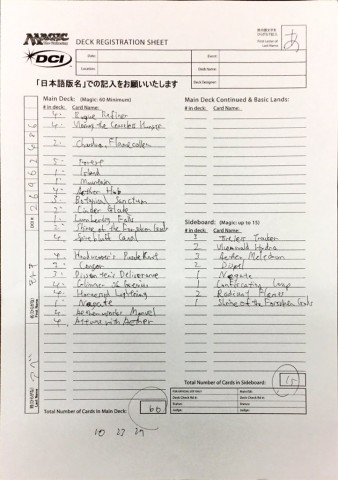 MAGIC
DCI
DECK REGISTRATION SHEET
First Letter of
Last Name
あ
Date:
Event:
Location:
Deck Name:
Deck Designer:
「日本語版名」での記入をお願いいたします
Main Deck: (Magic: 60 Minimum)
# in deck: Card Name:
4 Rogue Refiner
4
2 Chandra, Flamecaller
5 Forest
1 Island
1 Mountain
4 Aether Hub
3 Botanical Sanctum
2 Cinder Glade
1 Lumbering Falls
2 Shrine of the Forsaken Gods
4 Spirebluff Canal
4
2 Censor
3 Dissenter's Deliverance
4 Glimmer of Genius
4 Harnessed Lightning
1 Negate
4 Aetherworks Marvel
4 Attune with Aether
Total Number of Cards in Main Deck: 60
Main Deck Continued & Basic Lands:
# in deck: Card Name:
Sideboard: (Magic: up to 15)
# in deck: Card Name:
3 Tireless Tracker
2 Ulvenwald Hydra
3 Aether Meltdown
2 Dispel
1 Negate
1 Confiscation Coup
2 Radiant Flames
1 Shrine of the Forsaken Gods
Total Number of Cards in Sideboard: 15